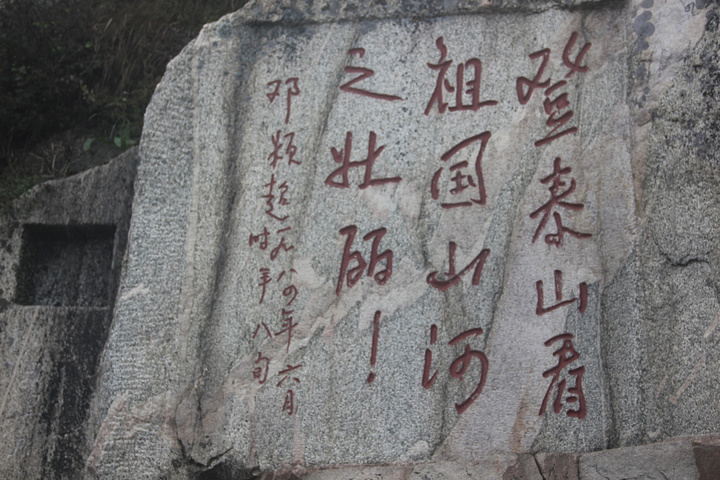 登泰山看
祖国山河
之壮丽！
邓颖超一九八四年六月
时年八旬